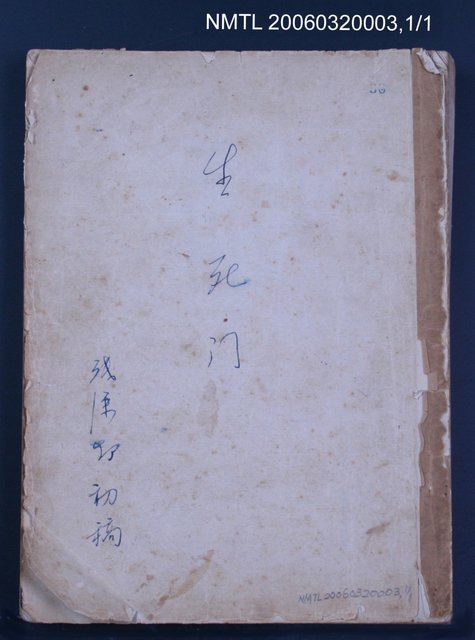 NMTL 20060320003,1/1
36
生死门
残原却初稿
NMTL 20060320003, 1/1